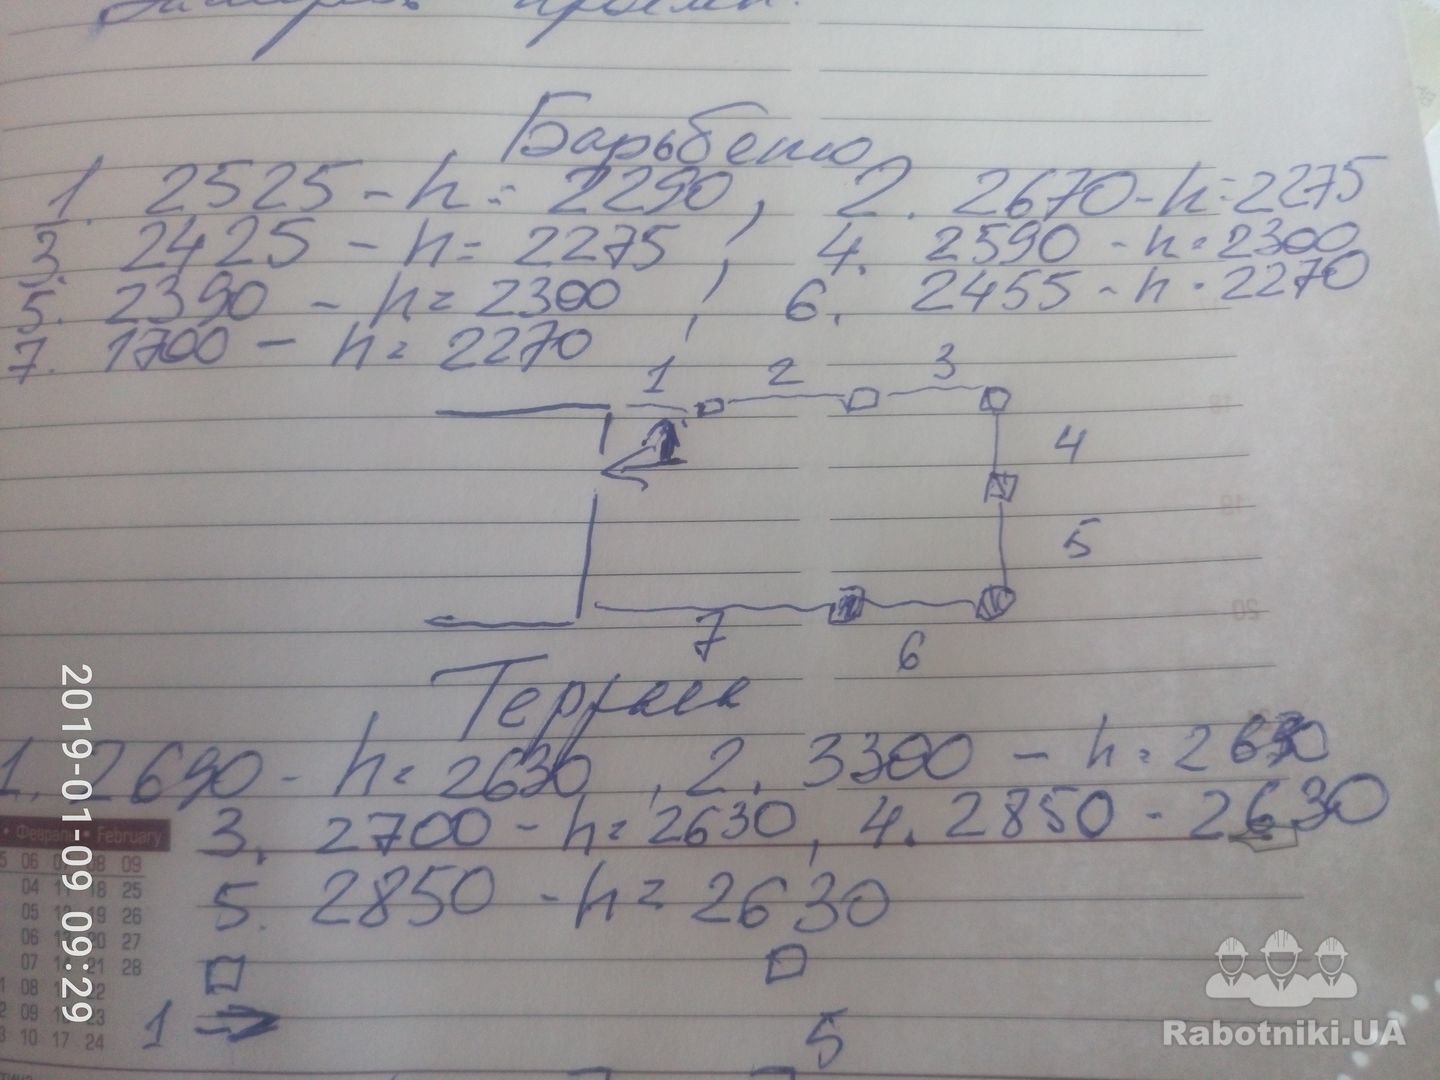 Барьбекю
1. 2525 - h = 2290, 2. 2670 - h = 2275
3. 2425 - h = 2275, 4. 2590 - h = 2300
5. 2390 - h = 2300, 6. 2455 - h = 2270
7. 1700 - h = 2270
1 2 3
4
5
7 6
Терраса
1. 2690 - h = 2630, 2. 3300 - h = 2630
3. 2700 - h = 2630, 4. 2850 - 2630
5. 2850 - h = 2630
1
5
2019-01-09 09:29
• February
06 08 09
04 18 25
05 19 26
06 20 27
07 14 21 28
08 22
09 23
10 17 24
18
19
20
Rabotniki.UA